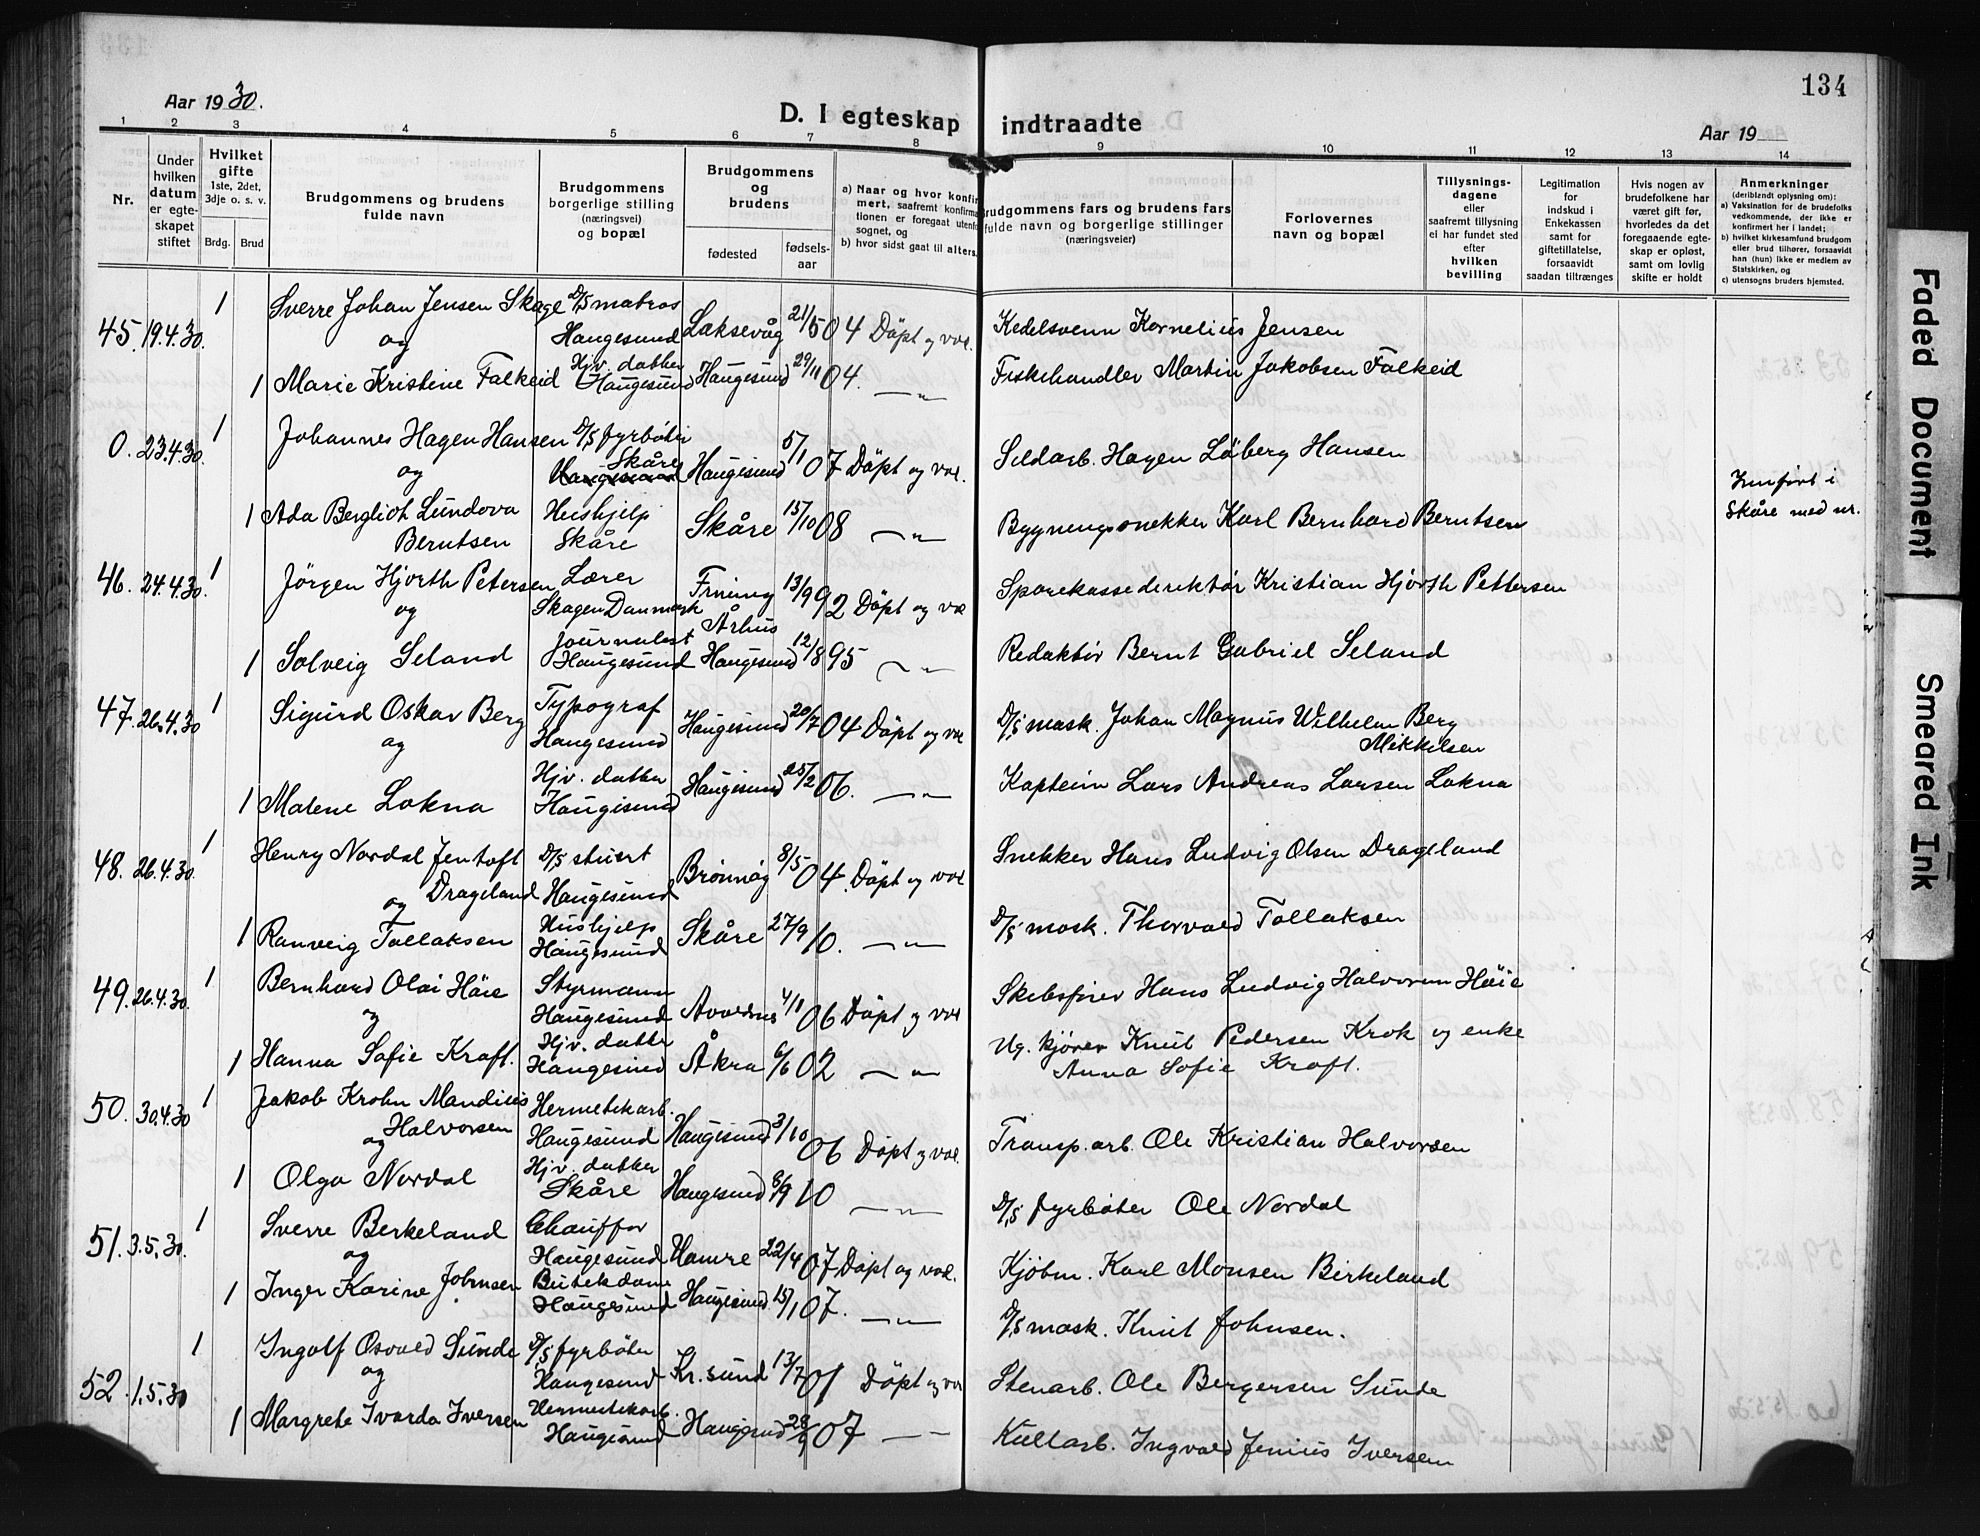 134
Aar 1930.
D. I egteskap indtraadte
Aar 19
1 2 3 4 5 6 7 8 9 10 11 12 13 14
Nr.
Under hvilken datum er egteskapet stiftet
Hvilket gifte 1ste, 2det, 3dje o. s. v.
Brdg. Brud
Brudgommens og brudens fulde navn
Brudgommens borgerlige stilling (næringsvei) og bopæl
Brudgommens og brudens
fødested fødsels-aar
a) Naar og hvor konfirmert, saafremt konfirmationen er foregaat utenfor sognet, og
b) hvor sidst gaat til alters.
Brudgommens fars og brudens fars fulde navn og borgerlige stillinger (næringsveier)
Forlovernes navn og bopæl
Tillysningsdagene eller saafremt tillysning ei har fundet sted efter hvilken bevilling
Legitimation for indskud i Enkekassen samt for giftetillatelse, forsaavidt saadan tiltrænges
Hvis nogen av brudefolkene har været gift før, hvorledes da det foregaaende egteskap er opløst, samt om lovlig skifte er holdt
Anmerkninger (deriblandt oplysning om):
a) Vaksination for de brudefolks vedkommende, der ikke er konfirmert her i landet;
b) hvilket kirkesamfund brudgom eller brud tilhører, forsaavidt han (hun) ikke er medlem av Statskirken, og
c) utensogns bruders hjemsted.
45. 19.4.30. 1 Sverre Johan Jensen Skage D/S matros Haugesund Laksevåg 21/5 04 Döpt og vac. Kedelsvenn Kornelius Jensen
og
1 Marie Kristine Falkeid Hjv. datter Haugesund Haugesund 29/11 04. —"— Fiskehandler Martin Jakobsen Falkeid
0. 23.4.30. 1 Johannes Hagen Hansen D/S fyrböter Skåre Haugesund Haugesund 5/1 07 Döpt og vac. Sildarb. Hagen Löberg Hansen
og
1 Ada Bergliot Lundova Berntsen Hushjelp Skåre Skåre 15/10 08 —"— Bygningssnekker Karl Bernhard Berntsen
Innfört i Skåre med nr.
46. 24.4.30. 1 Jörgen Hjorth Petersen Lærer Skagen Danmark Århus 13/9 92 Döpt og vac Sparekassedirektör Kristian Hjorth Pettersen
og
1 Solveig Seland Journalist Haugesund Haugesund 12/8 95 —"— Redaktör Bernt Gabriel Seland
47. 26.4.30 1 Sigurd Oskar Berg Typograf Haugesund Haugesund 20/7 04 Döpt og vac D/S mask. Johan Magnus Wilhelm Berg Mikkelsen
og
1 Malene Lokna Hjv. datter Haugesund Haugesund 25/2 06. —"— Kaptein Lars Andreas Larsen Lokna
48. 26.4.30. 1 Henry Nordal Jentoft Drageland D/S stuert Haugesund Brönnöy 8/5 04. Döpt og vac Snekker Hans Ludvig Olsen Drageland
og
1 Ranveig Tollaksen Hushjelp Haugesund Skåre 27/9 10. —"— D/S mask. Thorvald Tollaksen
49. 26.4.30. 1 Bernhard Olai Höie Styrmann Haugesund Avaldsnes 4/1 06 Döpt og vac Skibsförer Hans Ludvig Halvorsen Höie
og
1 Hanna Sofie Kraft. Hjv. datter Haugesund Åkra 6/6 02 —"— Ug. kjörer Knut Pedersen Krok og enke Anna Sofie Kraft.
50. 30.4.30 1 Jakob Krohn Mandius Halvorsen Hermetikarb. Haugesund Haugesund 3/10 06 Döpt og vac. Transp.arb. Ole Kristian Halvorsen
og
1 Olga Nordal Hjv. datter Skåre Haugesund 8/9 10 —"— D/S fyrböter Ole Nordal
51. 3.5.30. 1 Sverre Berkeland Chauffør Haugesund Hamre 22/4 07 Döpt og vac. Kjöbm. Karl Monsen Birkeland
og
1 Inger Karine Johnsen Butikdame Haugesund Haugesund 15/1 07. —"— D/S mask. Knut Johnsen.
52. 1.5.30 1 Ingolf Osvald Sunde D/S fyrböter Haugesund Kr.sund 13/7 01 Döpt og vac Stenarb. Ole Bergersen Sunde
og
1 Margrete Ivarda Iversen Hermetikarb. Haugesund Haugesund 28/9 07 —"— Kullarb. Ingvald Jenius Iversen
Faded Document
Smeared Ink